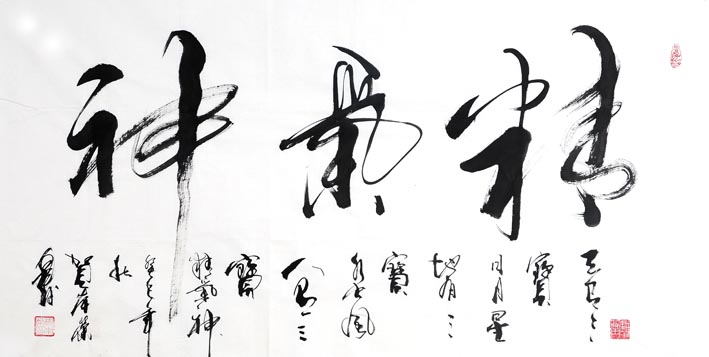 精氣神
天有三
寶
日月星
地有三
寶
水火風
人有三
寶
精氣神
癸巳年